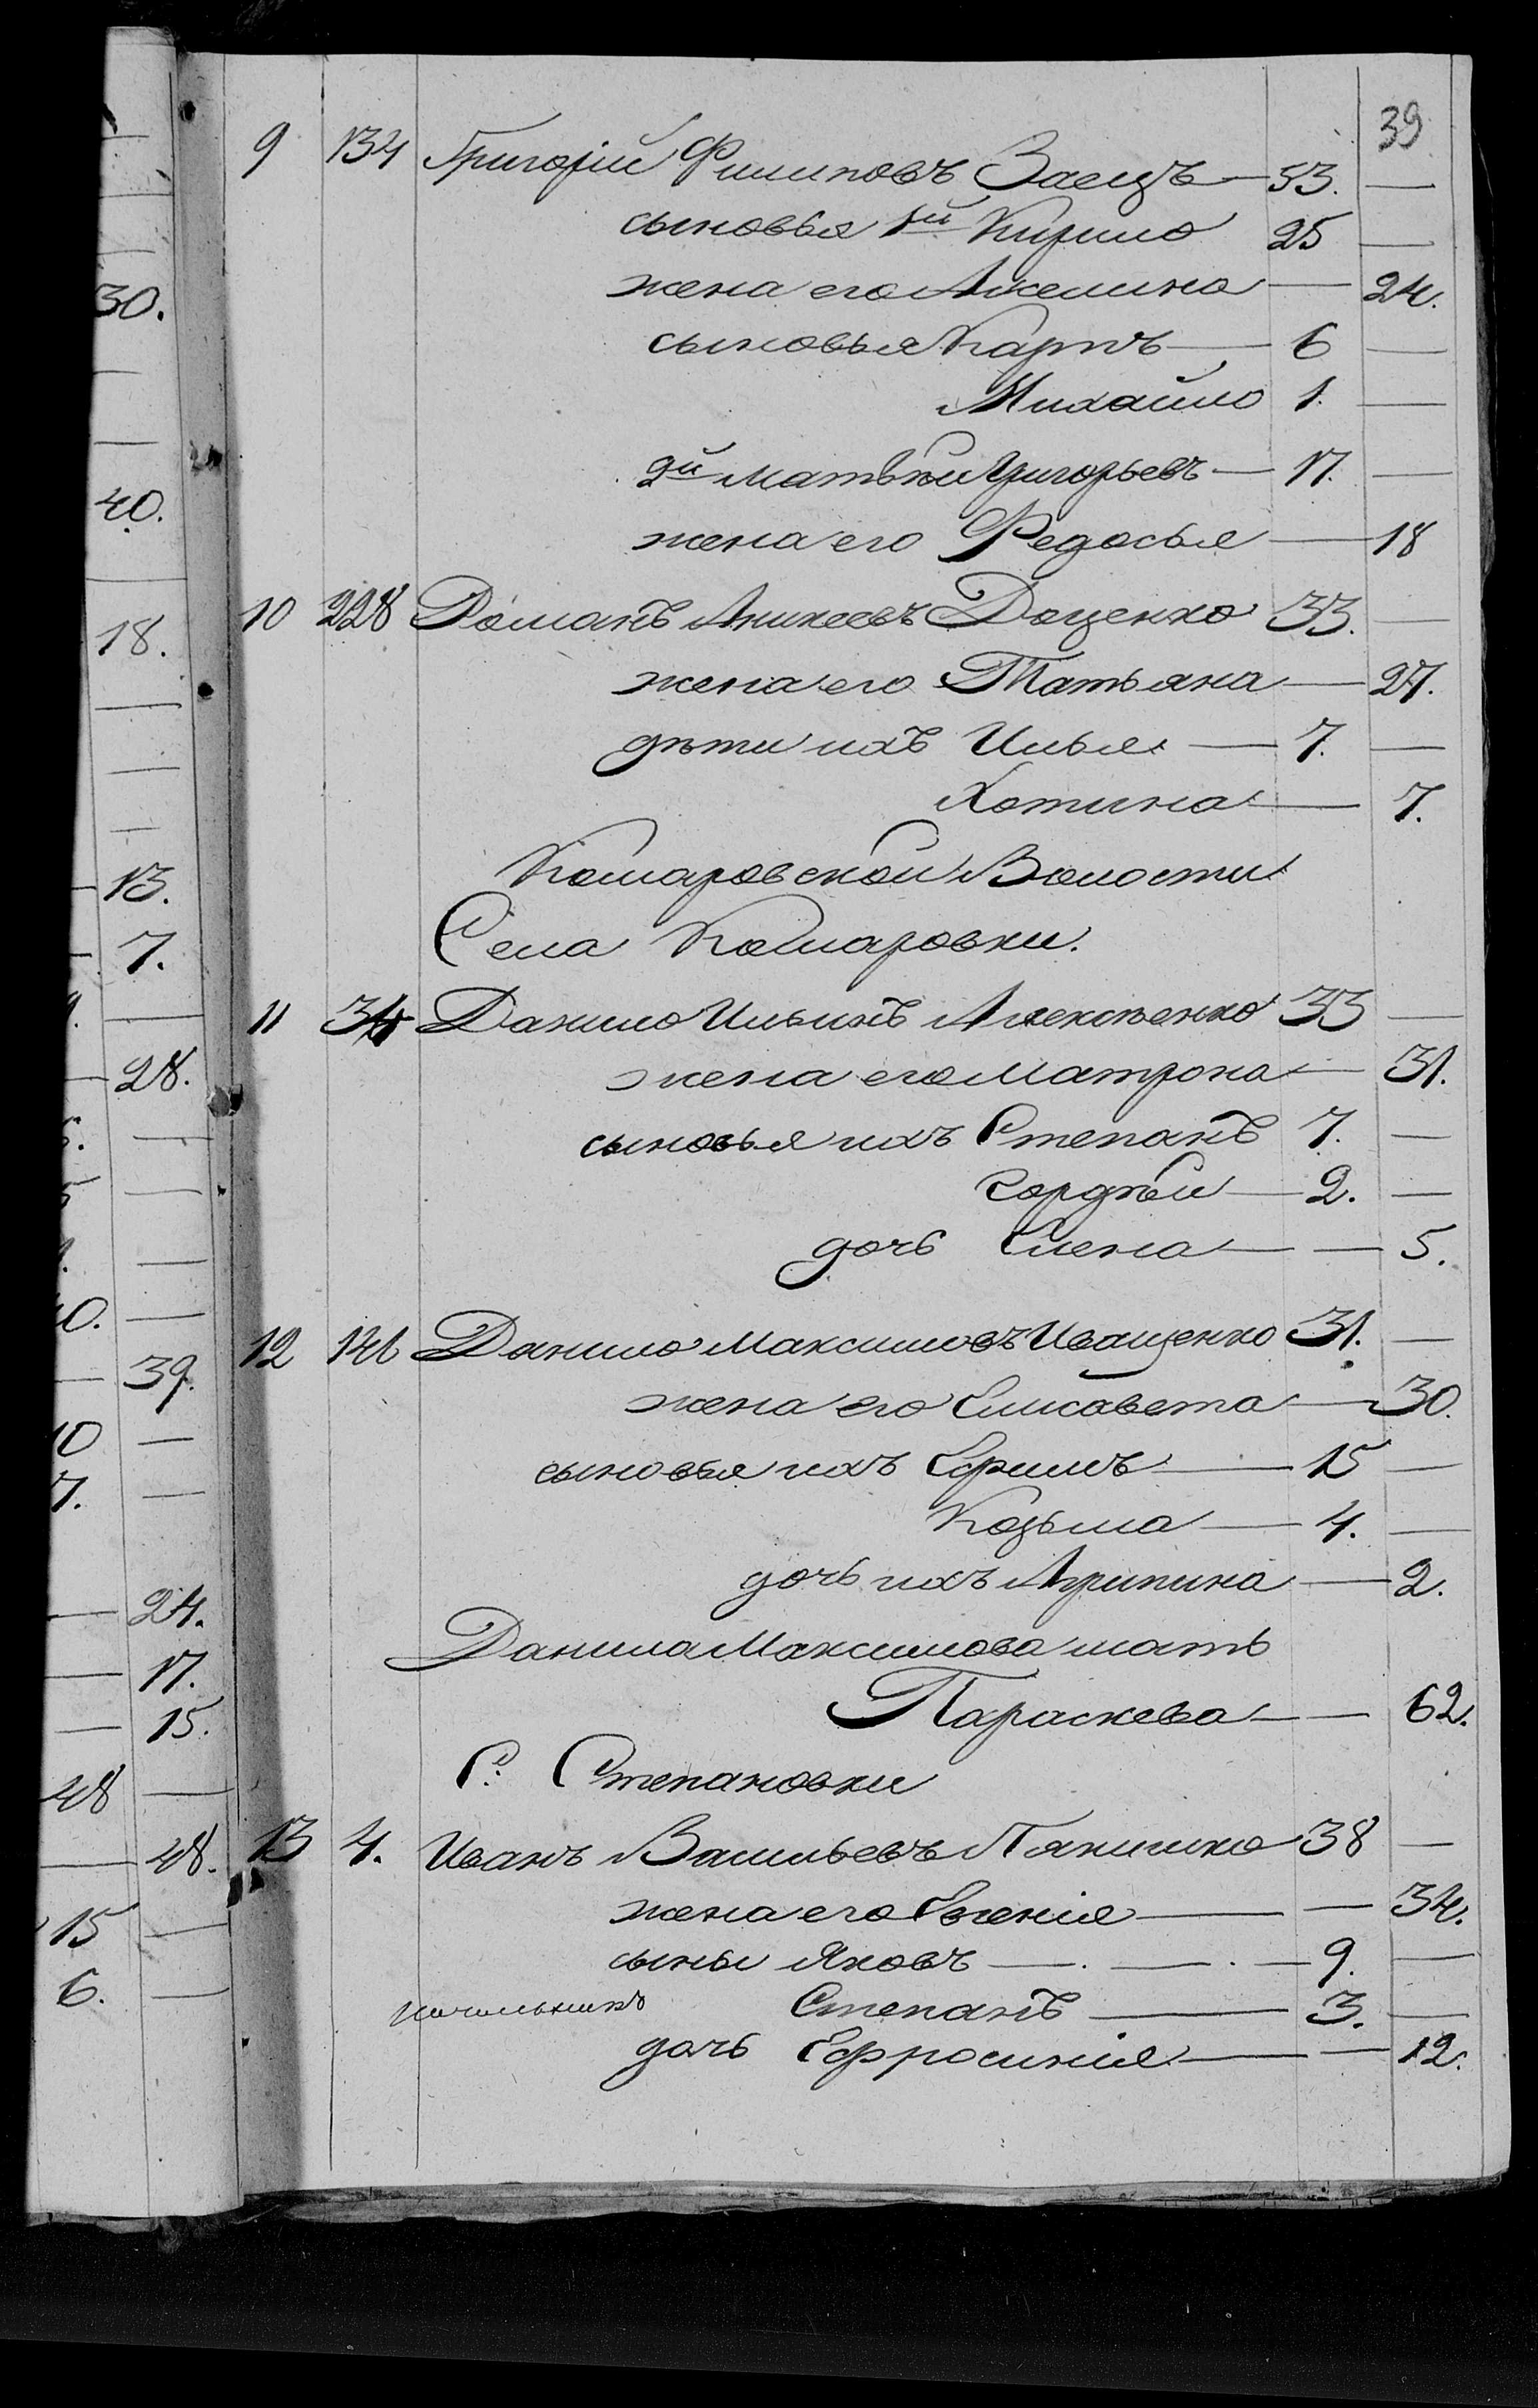 39
9 134 Григорій Филиповъ Заецъ — 53. —
сыновья 1й Кирило 25 —
жена его Акелина — 24.
сыновья Карпъ — 6 —
Михайло 1. —
2й Матвѣй Григорьевъ — 17. —
жена его Федосья — 18
10 228 Романъ Аникеевъ Доценко 33. —
жена его Татьяна — 27.
дѣти ихъ Илья — 7. —
Хотина — 7.
Комаровской Волости
Села Комаровки.
11 34 Данило Ильинъ Алексѣенко 33 —
жена его Матрона — 31.
сыновья ихъ Степанъ 7. —
Гордѣй — 2. —
дочь Елена — — 5.
12 141 Данило Максимовъ Иващенко 31. —
жена его Елисавета — 30.
сыновья ихъ Ефимъ — 15 —
Козьма — 4. —
дочь ихъ Агрипина — 2.
Данила Максимова мать
Параскева — — 62.
С. Степановки
13 4. Иванъ Васильевъ 38 —
жена его Евгенія — — 34.
сыны Яковъ — . — . — 9. —
Степанъ — 3. —
дочь Ефросинія — — 12.
30.
40.
18.
13.
7.
28.
39.
10 —
7. —
— 24.
— 17.
— 15.
48 —
— 48.
15 —
6. —